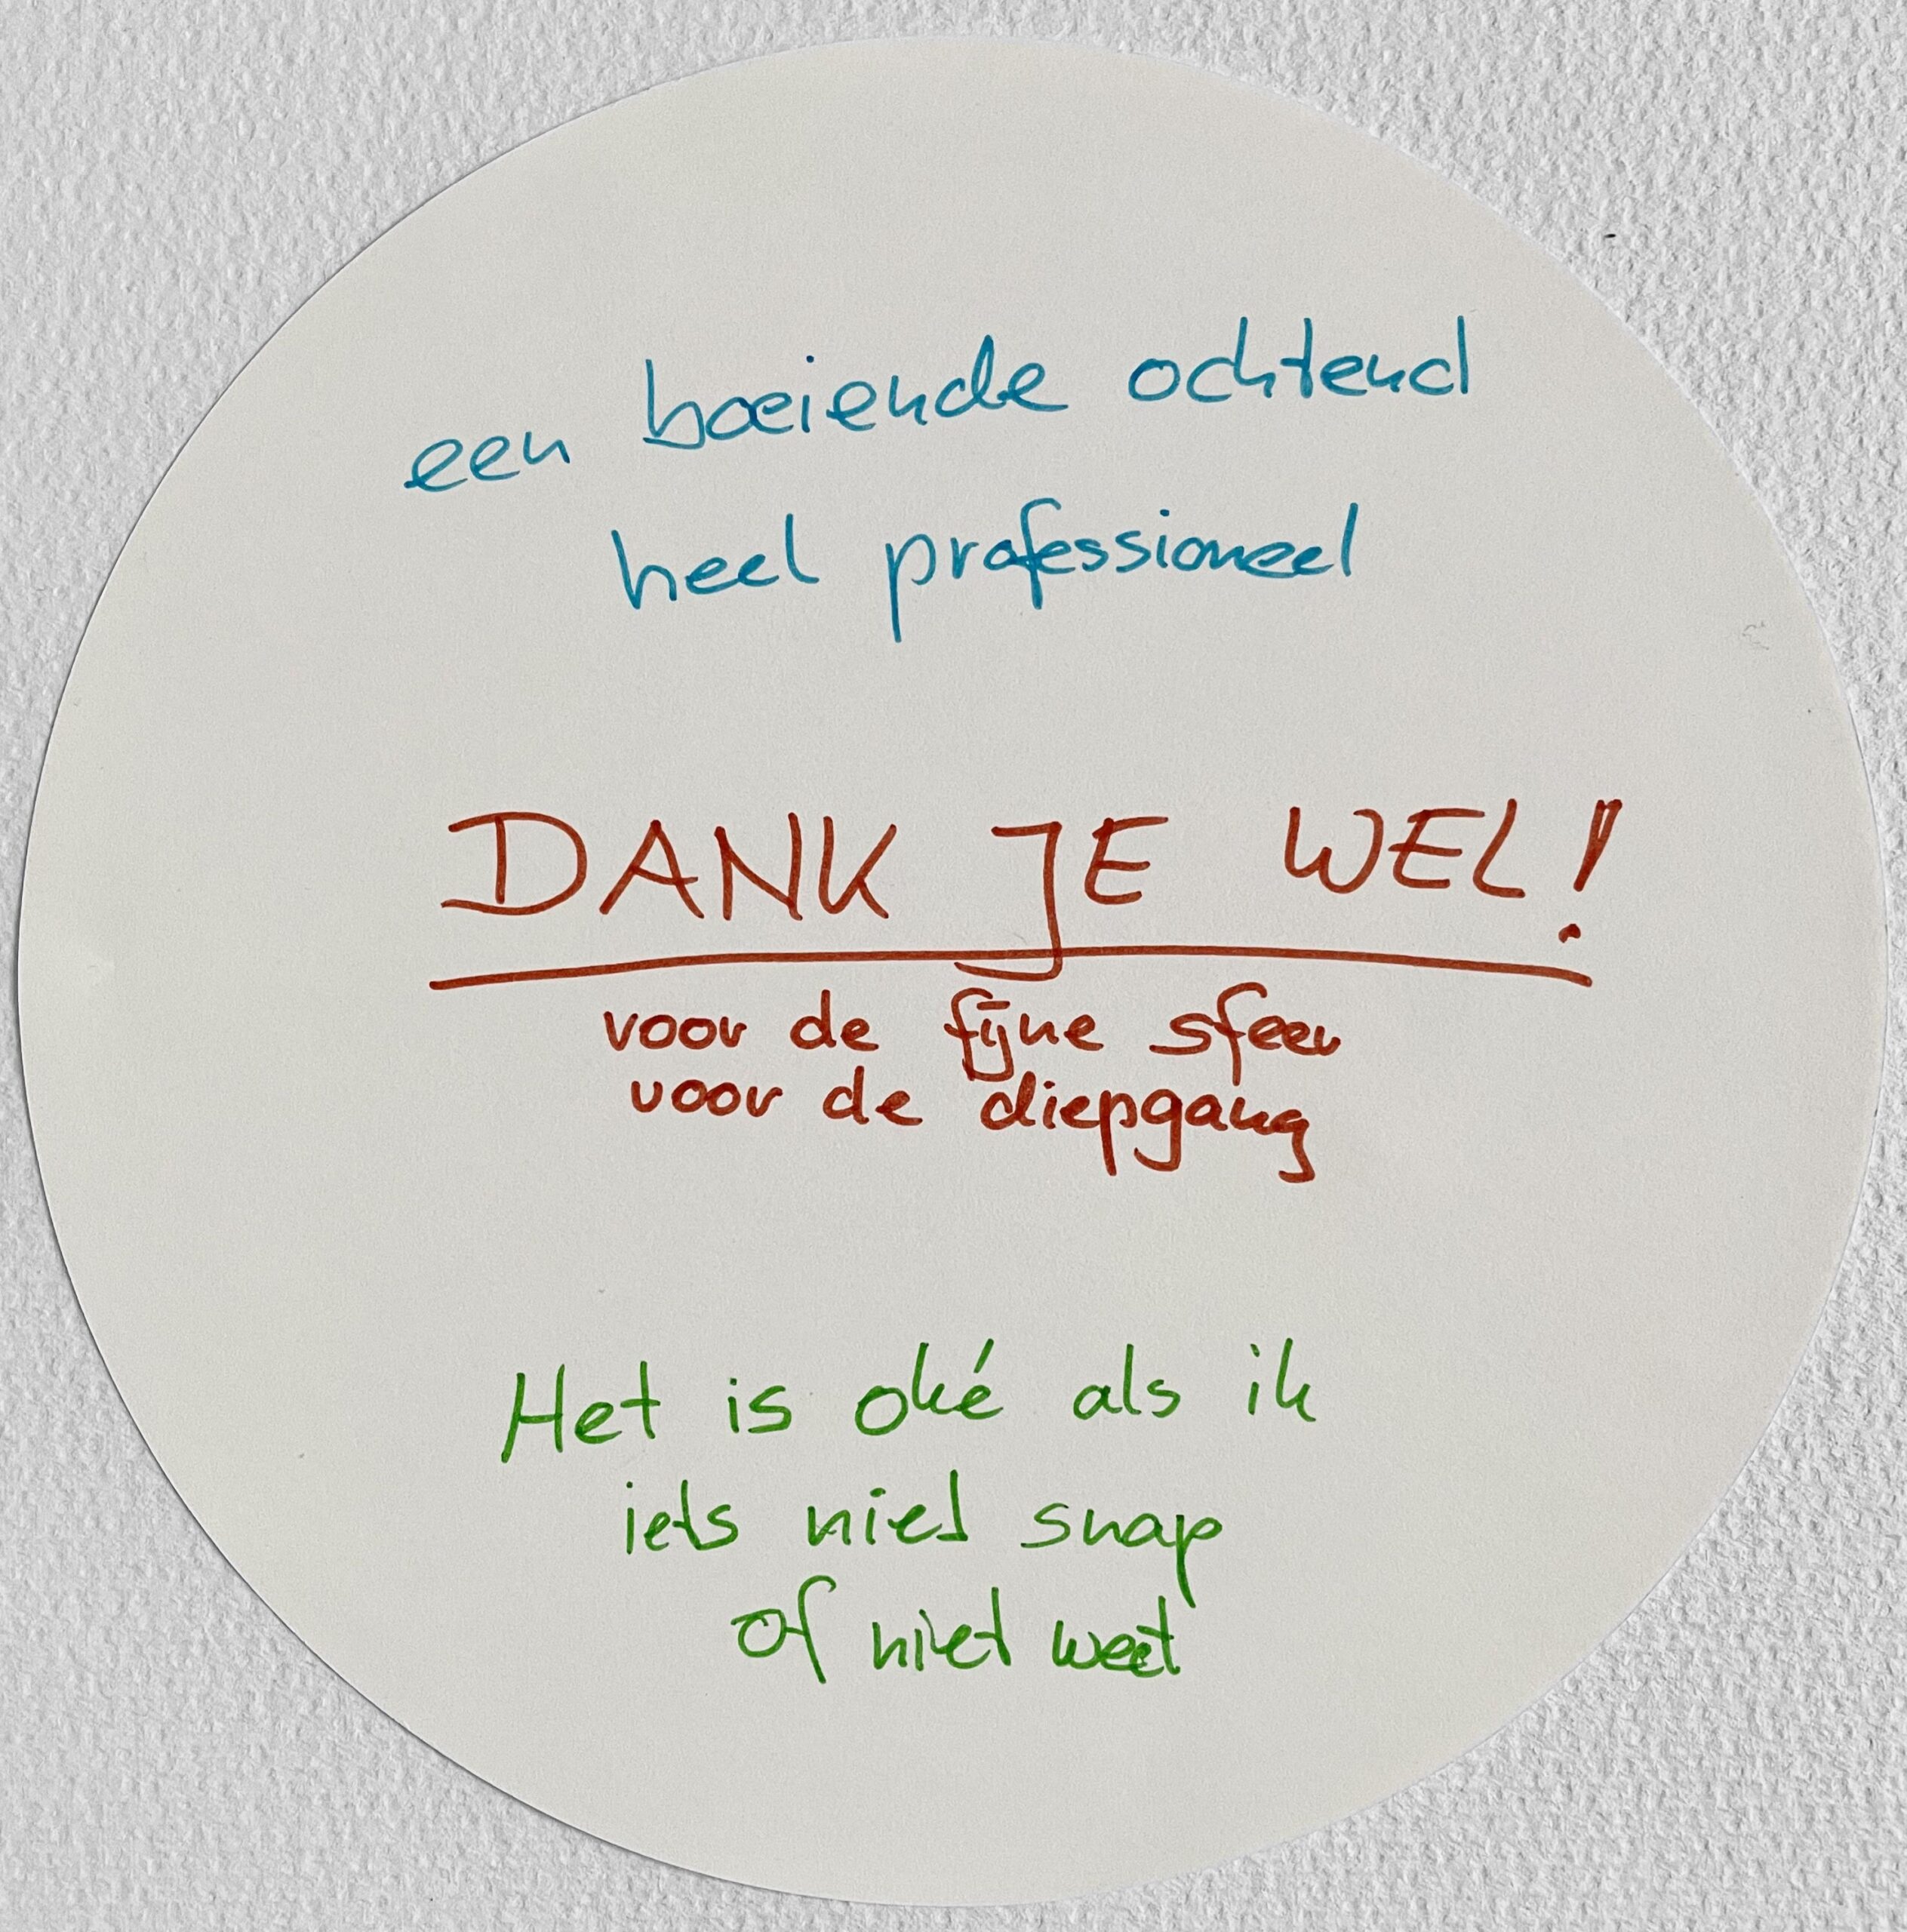 een boeiende ochtend
heel professioneel
DANK JE WEL!
voor de fijne sfeer
voor de diepgang
Het is oké als ik
iets niet snap
of niet weet